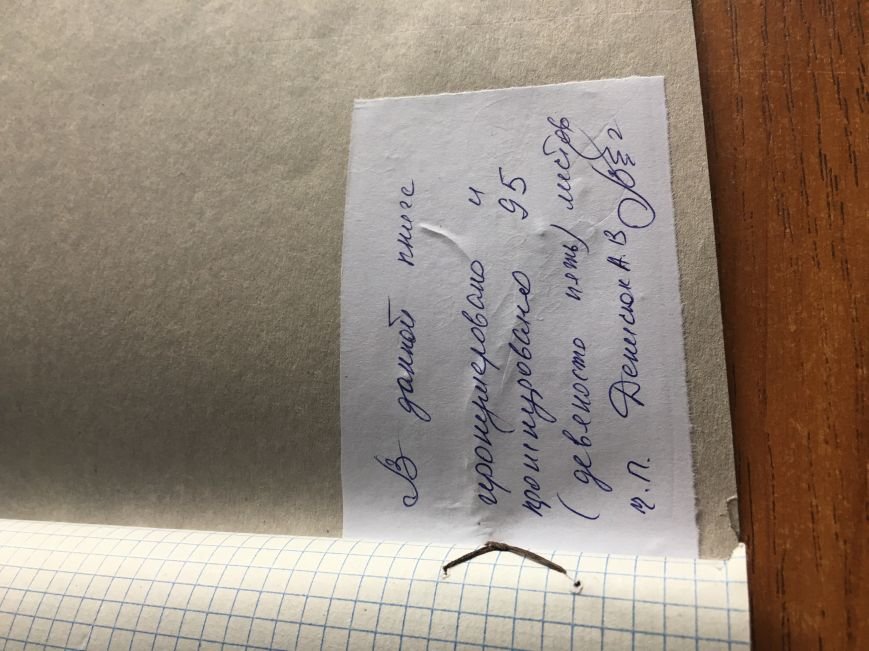 В данной книге
пронумеровано и
прошнуровано 95
(девяносто пять) листов
М.П. Денисюк А.В